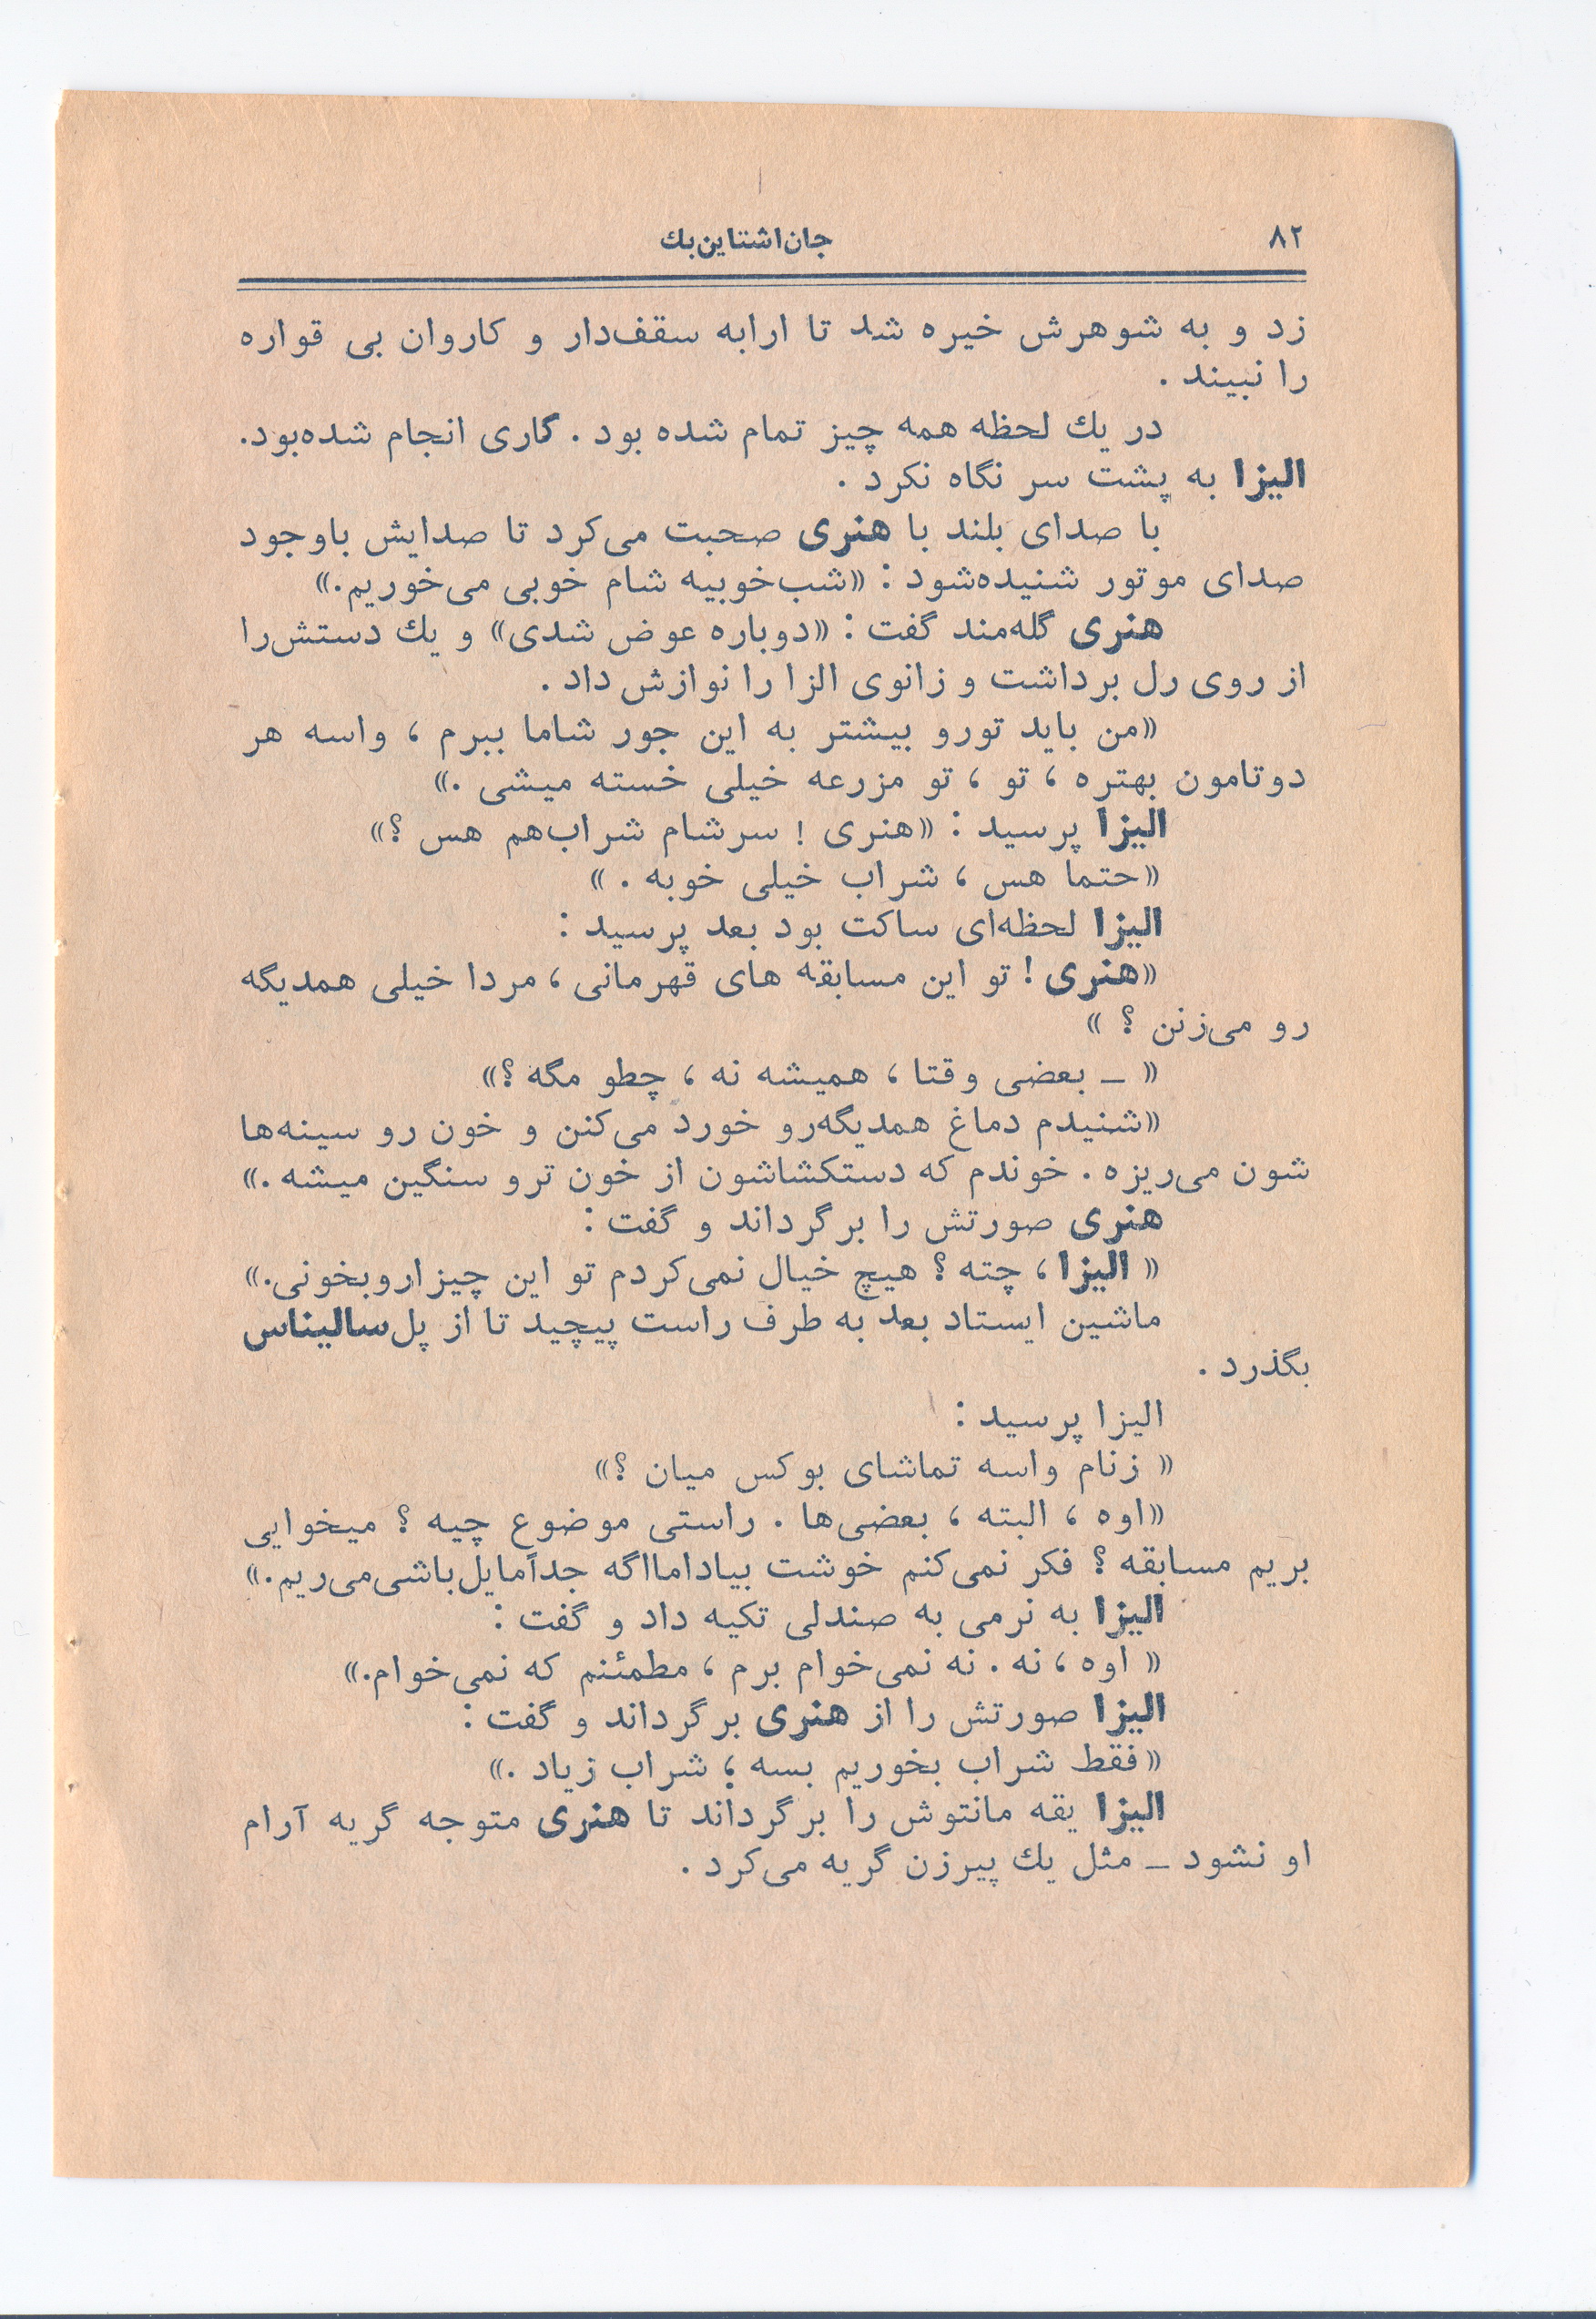 ۸۲
جان‌اشتاین‌بك
زد و به شوهرش خیره شد تا ارابه سقف‌دار و کاروان بی قواره
را نبیند .
در یك لحظه همه چیز تمام شده بود . کاری انجام شده‌بود.
الیزا به پشت سر نگاه نکرد .
با صدای بلند با هنری صحبت می‌کرد تا صدایش باوجود
صدای موتور شنیده‌شود : «شب‌خوبیه شام خوبی می‌خوریم.»
هنری گله‌مند گفت : «دوباره عوض شدی» و یك دستش‌را
از روی رل برداشت و زانوی الزا را نوازش داد .
«من باید تورو بیشتر به این جور شاما ببرم ، واسه هر
دوتامون بهتره ، تو ، تو مزرعه خیلی خسته میشی .»
الیزا پرسید : «هنری ! سرشام شراب‌هم هس ؟»
«حتما هس ، شراب خیلی خوبه . »
الیزا لحظه‌ای ساکت بود بعد پرسید :
«هنری ! تو این مسابقه های قهرمانی ، مردا خیلی همدیگه
رو می‌زنن ؟ »
« ـ بعضی وقتا ، همیشه نه ، چطو مگه ؟»
«شنیدم دماغ همدیگه‌رو خورد می‌کنن و خون رو سینه‌ها
شون می‌ریزه . خوندم که دستکشاشون از خون ترو سنگین میشه .»
هنری صورتش را برگرداند و گفت :
« الیزا ، چته ؟ هیچ خیال نمی‌کردم تو این چیزاروبخونی.»
ماشین ایستاد بعد به طرف راست پیچید تا از پل سالیناس
بگذرد .
الیزا پرسید :
« زنام واسه تماشای بوکس میان ؟»
«اوه ، البته ، بعضی‌ها . راستی موضوع چیه ؟ میخوایی
بریم مسابقه ؟ فکر نمی‌کنم خوشت بیاداما‌اگه جداًمایل‌باشی‌می‌ریم.»
الیزا به نرمی به صندلی تکیه داد و گفت :
« اوه ، نه . نه نمی‌خوام برم ، مطمئنم که نمی‌خوام.»
الیزا صورتش را از هنری برگرداند و گفت :
«فقط شراب بخوریم بسه ؛ شراب زیاد .»
الیزا یقه مانتوش را برگرداند تا هنری متوجه گریه آرام
او نشود ـ مثل یك پیرزن گریه می‌کرد .